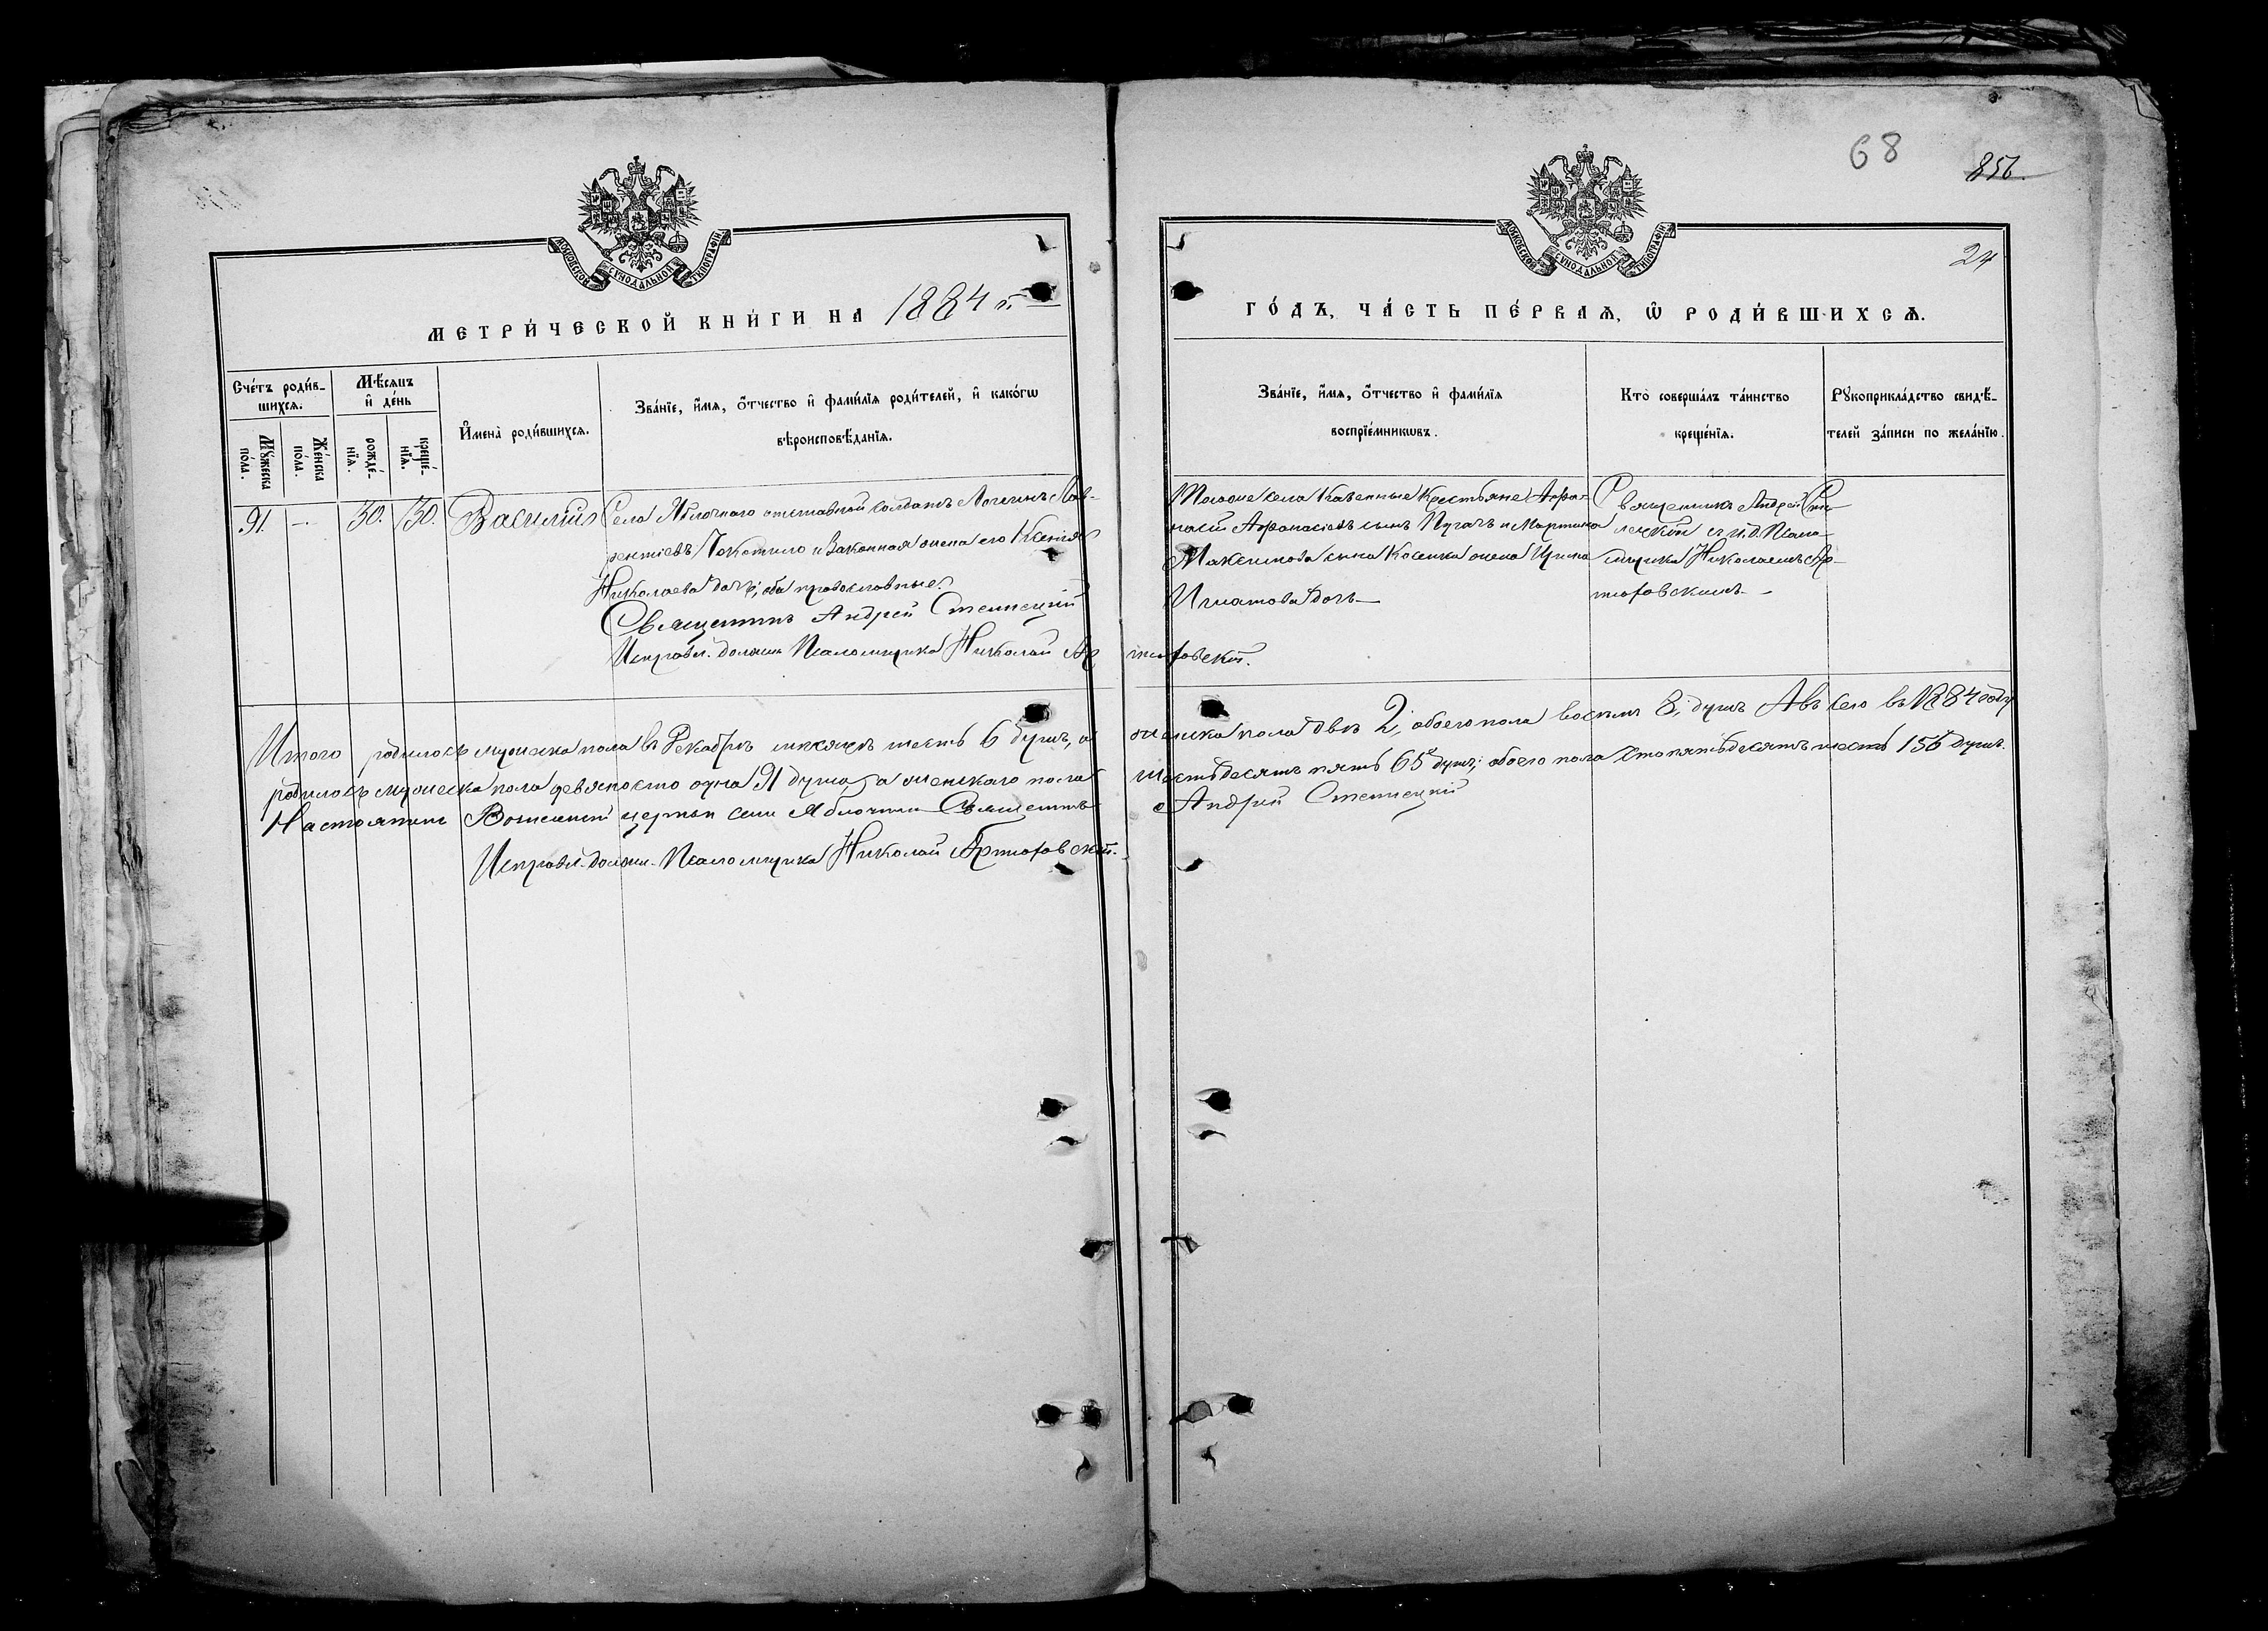 68
856
24
МОСКОВСКОЙ СУНОДАЛЬНОЙ ТИПОГРАФІИ
МОСКОВСКОЙ СУНОДАЛЬНОЙ ТИПОГРАФІИ
МЕТРИ́ЧЕСКОЙ КНИ́ГИ НА 1884 г.
ГО́ДЪ, ЧА́СТЬ ПЕ́РВАѦ, Ѡ РОДИ́ВШИХСѦ.
Сче́тъ роди́в-
шихсѧ.
Мꙋ́жеска
по́ла.
Же́нска
по́ла.
Мѣ́сѧцъ
и҆ де́нь
рожде́-
нїѧ.
креще́-
нїѧ.
И҆мена̀ роди́вшихсѧ.
Зва́нїе, и҆́мѧ, о҆́тчество и҆ фами́лїѧ роди́телей, и҆ како́гѡ
вѣроисповѣ́данїѧ.
Зва́нїе, и҆́мѧ, о҆́тчество и҆ фами́лїѧ
воспрїе́мникѡвъ.
Кто̀ соверша́лъ та́инство
креще́нїѧ.
Рꙋкоприкла́дство свидѣ́-
телей за́писи по жела́нїю.
91. — 30. 30. Василій
Села Яблочнаго отставной солдатъ Логгинъ Лав-
рентіевъ и Законная жена его Ксенія
Николаева дочь; оба православные.
Священникъ Андрей
Исправл. должн. Псаломщика Николай Ар
тюховскій.
Тогоже села Казенные Крестьяне Афа-
насій Афанасіевъ сынъ Пугачъ и Мартина
Максимова сына Косенка жена Ирина
Игнатова дочь
Священникъ Андрей
и. д. Псало-
мщика Николаемъ Ар-
тюховскимъ
Итого родилось мужеска пола въ Декабрѣ мѣсяцѣ шесть 6 душъ, а
женска пола двѣ 2, обоего пола восемь 8, душъ А въ сего въ 1884 году
родилось мужеска пола девяносто одна 91 душа, а женскаго пола
шестьдесятъ пять 65 душъ; обоего пола сто пятьдесятъ шесть 156 душъ.
церкви села Яблочнаго Священникъ
Андрей
Исправл. должн. Псаломщика Николай Артюховскій.